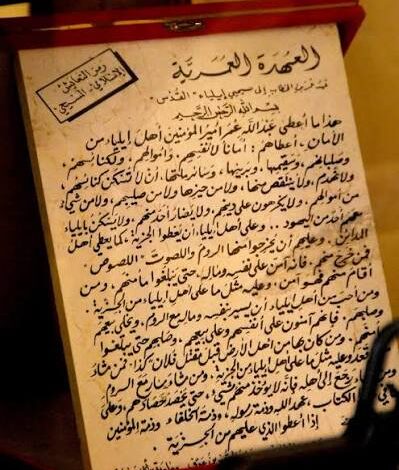 العهدة العمرية
رمز التعايش
الإسلامي المسيحي
من عمر بن الخطاب إلى مسيحيي إيلياء "القدس"
بسم الله الرحمن الرحيم
هذا ما أعطى عبد الله عمر أمير المؤمنين أهل إيلياء من
الأمان، أعطاهم: أماناً لأنفسهم، وأموالهم، ولكنائسهم،
وصلبانهم، وسقيمها، وبريئها، وسائر ملتها، أن لا تسكن كنائسهم
ولا تهدم، ولا ينتقص منها، ولا من حيزها ولا من صليبهم، ولا من شيء
من أموالهم، ولا يكرهون على دينهم، ولا يضار أحد منهم، ولا يسكن بإيلياء
معهم أحد من اليهود.. وعلى أهل إيلياء أن يعطوا الجزية، كما يعطي أهل
المدائن. وعليهم أن يخرجوا منها الروم واللصوت "اللصوص"
فمن خرج منهم. فإنه آمن على نفسه وماله، حتى يبلغوا مأمنهم، ومن
أقام منهم فهو آمن. وعليه مثل ما على أهل إيلياء من الجزية.
ومن أحب من أهل إيلياء أن يسير بنفسه وماله مع الروم، وعلى بيعهم
وصلبهم. فإنهم آمنون على أنفسهم وعلى بيعهم وصلبهم حتى يبلغوا
مأمنهم. ومن كان بها من أهل الأرض قبل مقتل فلان "كذا" فمن شاء
قعد وعليه مثل ما على أهل إيلياء من الجزية. ومن شاء سار مع الروم
رجع إلى أهله فإنه لا يؤخذ منهم شيء، حتى يحصد حصادهم، وعلى
الكتاب، عهد الله وذمة رسوله، وذمة الخلفاء، وذمة المؤمنين
إذا أعطوا الذي عليهم من الجزية.